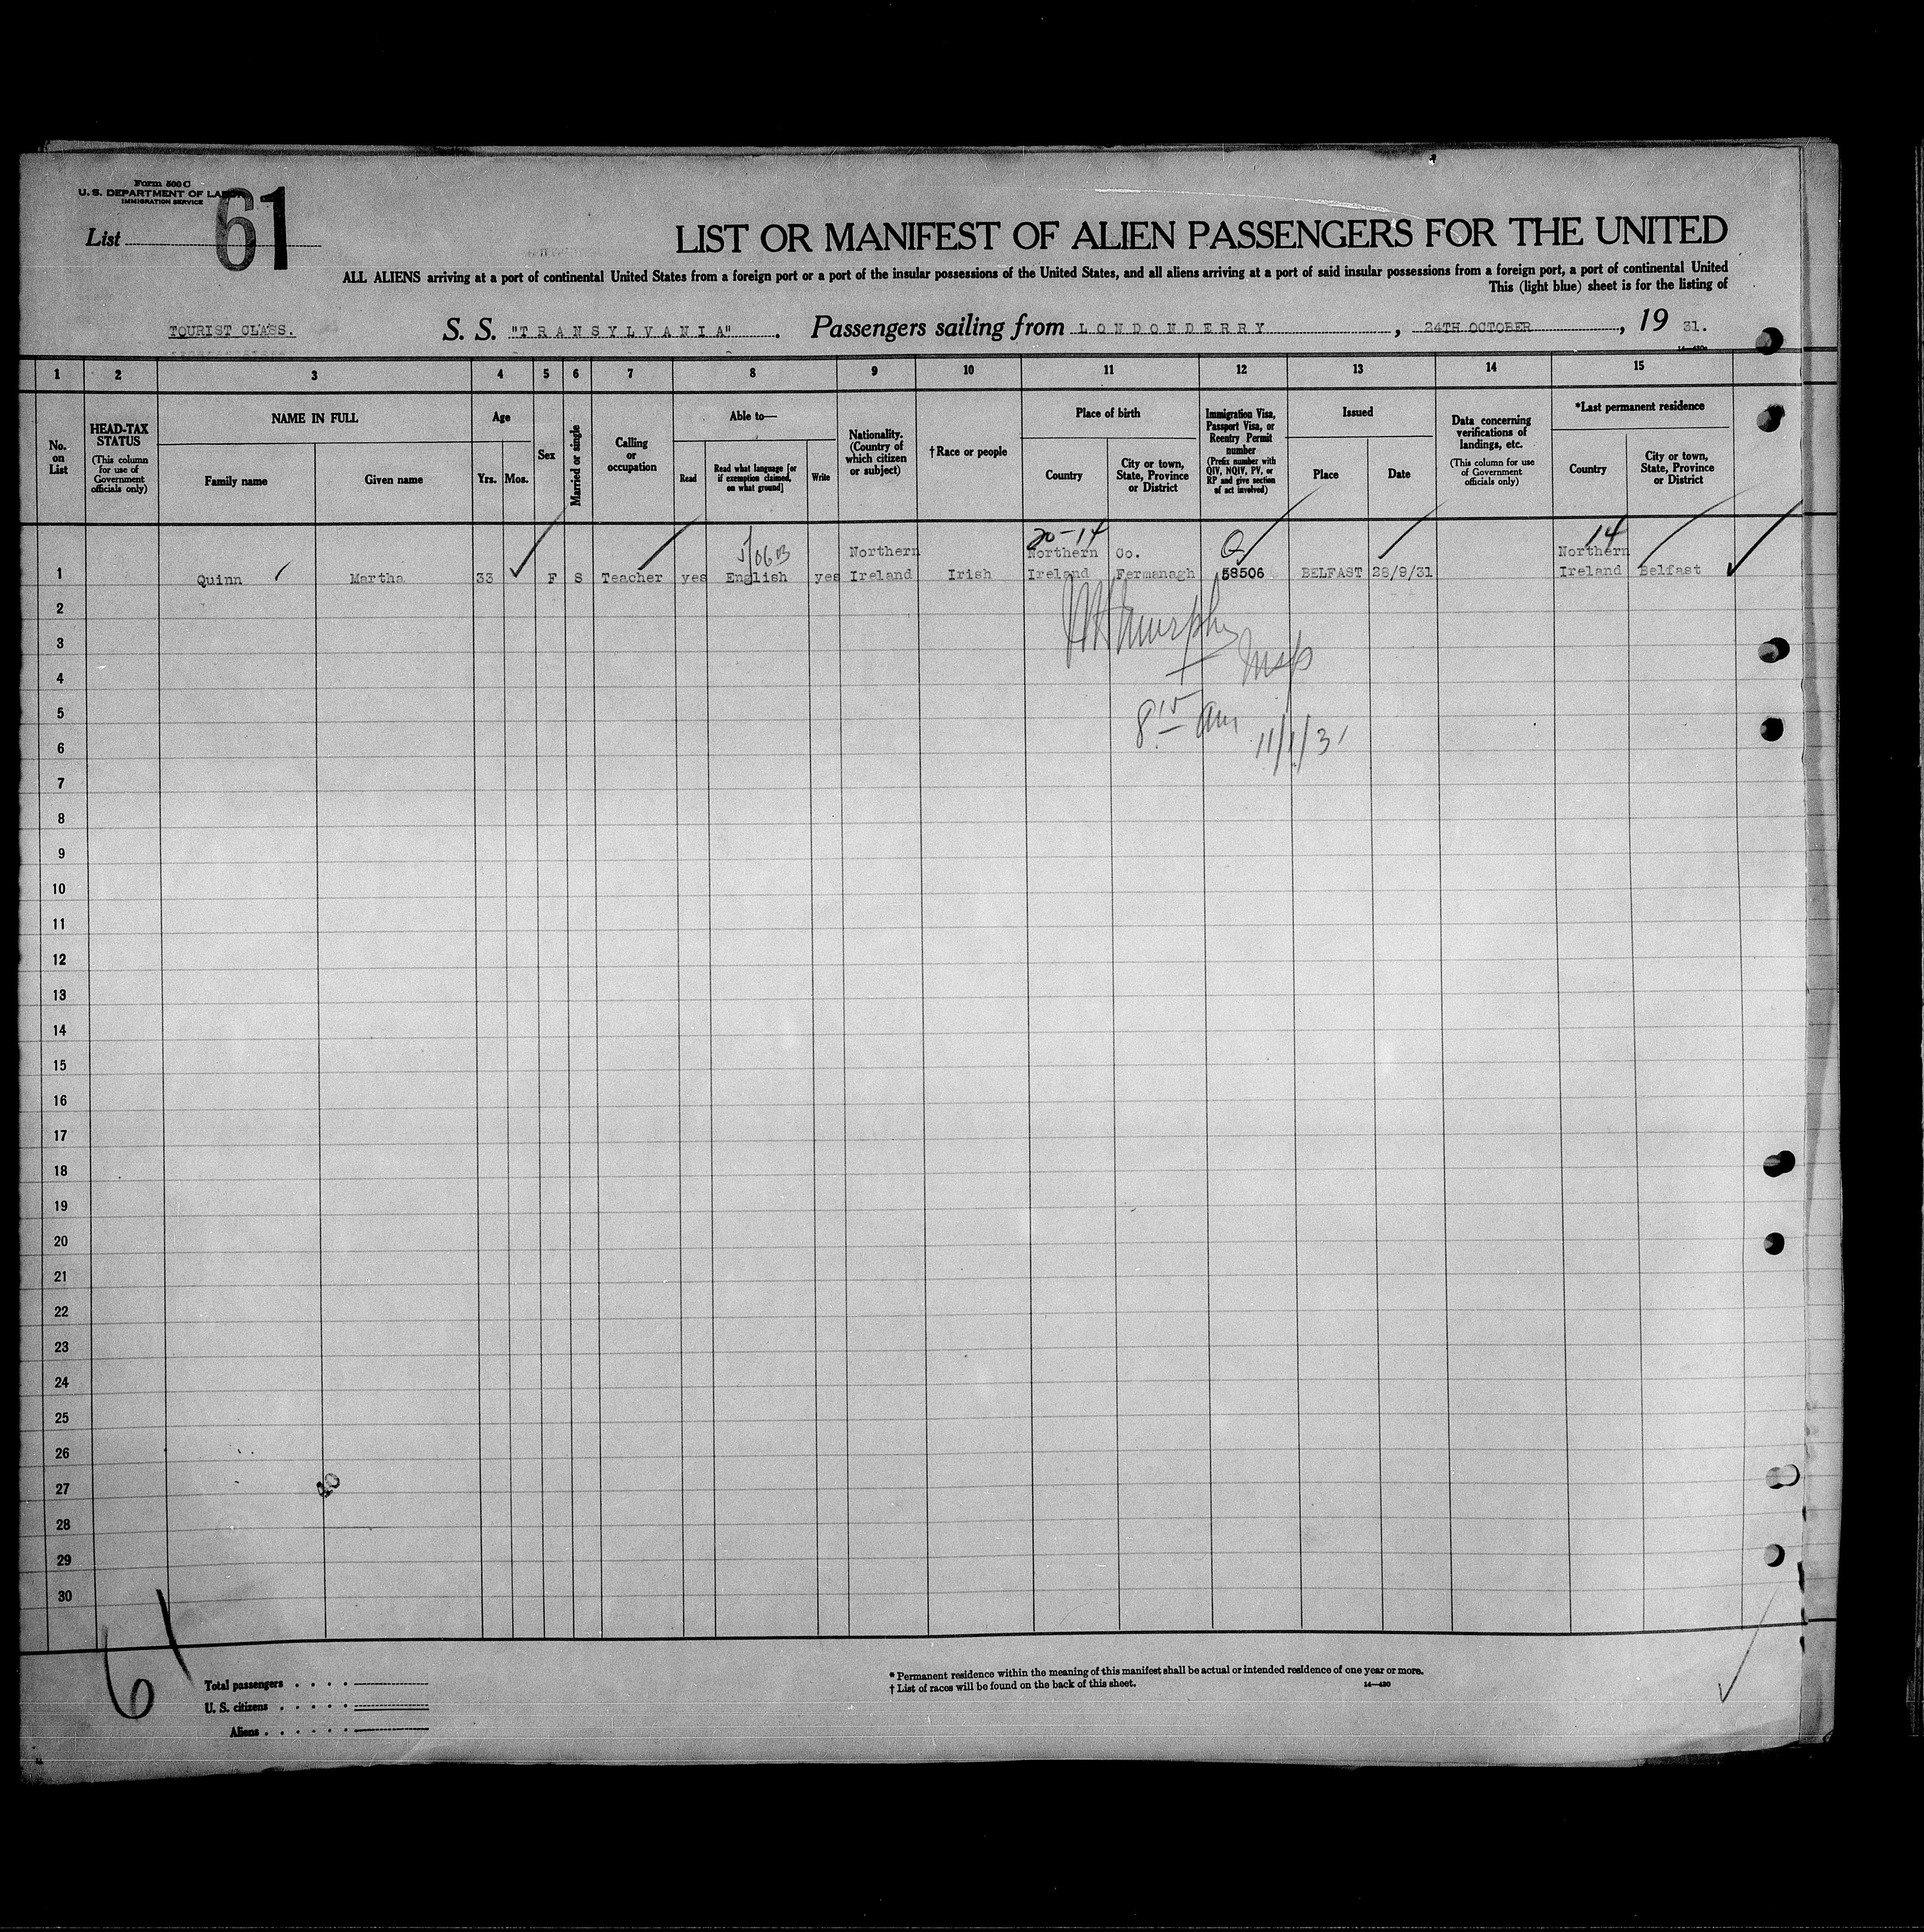 Form 500 C
U. S. DEPARTMENT OF LABOR
IMMIGRATION SERVICE
List 61
LIST OR MANIFEST OF ALIEN PASSENGERS FOR THE UNITED
ALL ALIENS arriving at a port of continental United States from a foreign port or a port of the insular possessions of the United States, and all aliens arriving at a port of said insular possessions from a foreign port, a port of continental United
This (light blue) sheet is for the listing of
TOURIST CLASS. S. S. "TRANSYLVANIA". Passengers sailing from LONDONDERRY, 24TH OCTOBER, 19 31.
14—430
1 2 3 4 5 6 7 8 9 10 11 12 13 14 15
No. on List
HEAD-TAX STATUS
(This column for use of Government officials only)
NAME IN FULL
Family name
Given name
Age
Yrs. Mos.
Sex
Married or single
Calling or occupation
Able to—
Read
Read what language [or if exemption claimed, on what ground]
Write
Nationality. (Country of which citizen or subject)
†Race or people
Place of birth
Country
City or town, State, Province or District
Immigration Visa, Passport Visa, or Reentry Permit number
(Prefix number with QIV, NQIV, PV, or RP and give section of act involved)
Issued
Place
Date
Data concerning verifications of landings, etc.
(This column for use of Government officials only)
*Last permanent residence
Country
City or town, State, Province or District
20-14 Q 14
Northern Northern Co. Northern
1 Quinn Martha 33 F S Teacher yes English yes Ireland Irish Ireland Fermanagh 58506 BELFAST 28/9/31 Ireland Belfast
2
3
Murphy
Insp
4
5
8 15 am
6
11/1/31
7
8
9
10
11
12
13
14
15
16
17
18
19
20
21
22
23
24
25
26
27
28
29
30
61
Total passengers
U. S. citizens
Aliens
* Permanent residence within the meaning of this manifest shall be actual or intended residence of one year or more.
† List of races will be found on the back of this sheet.
14—430